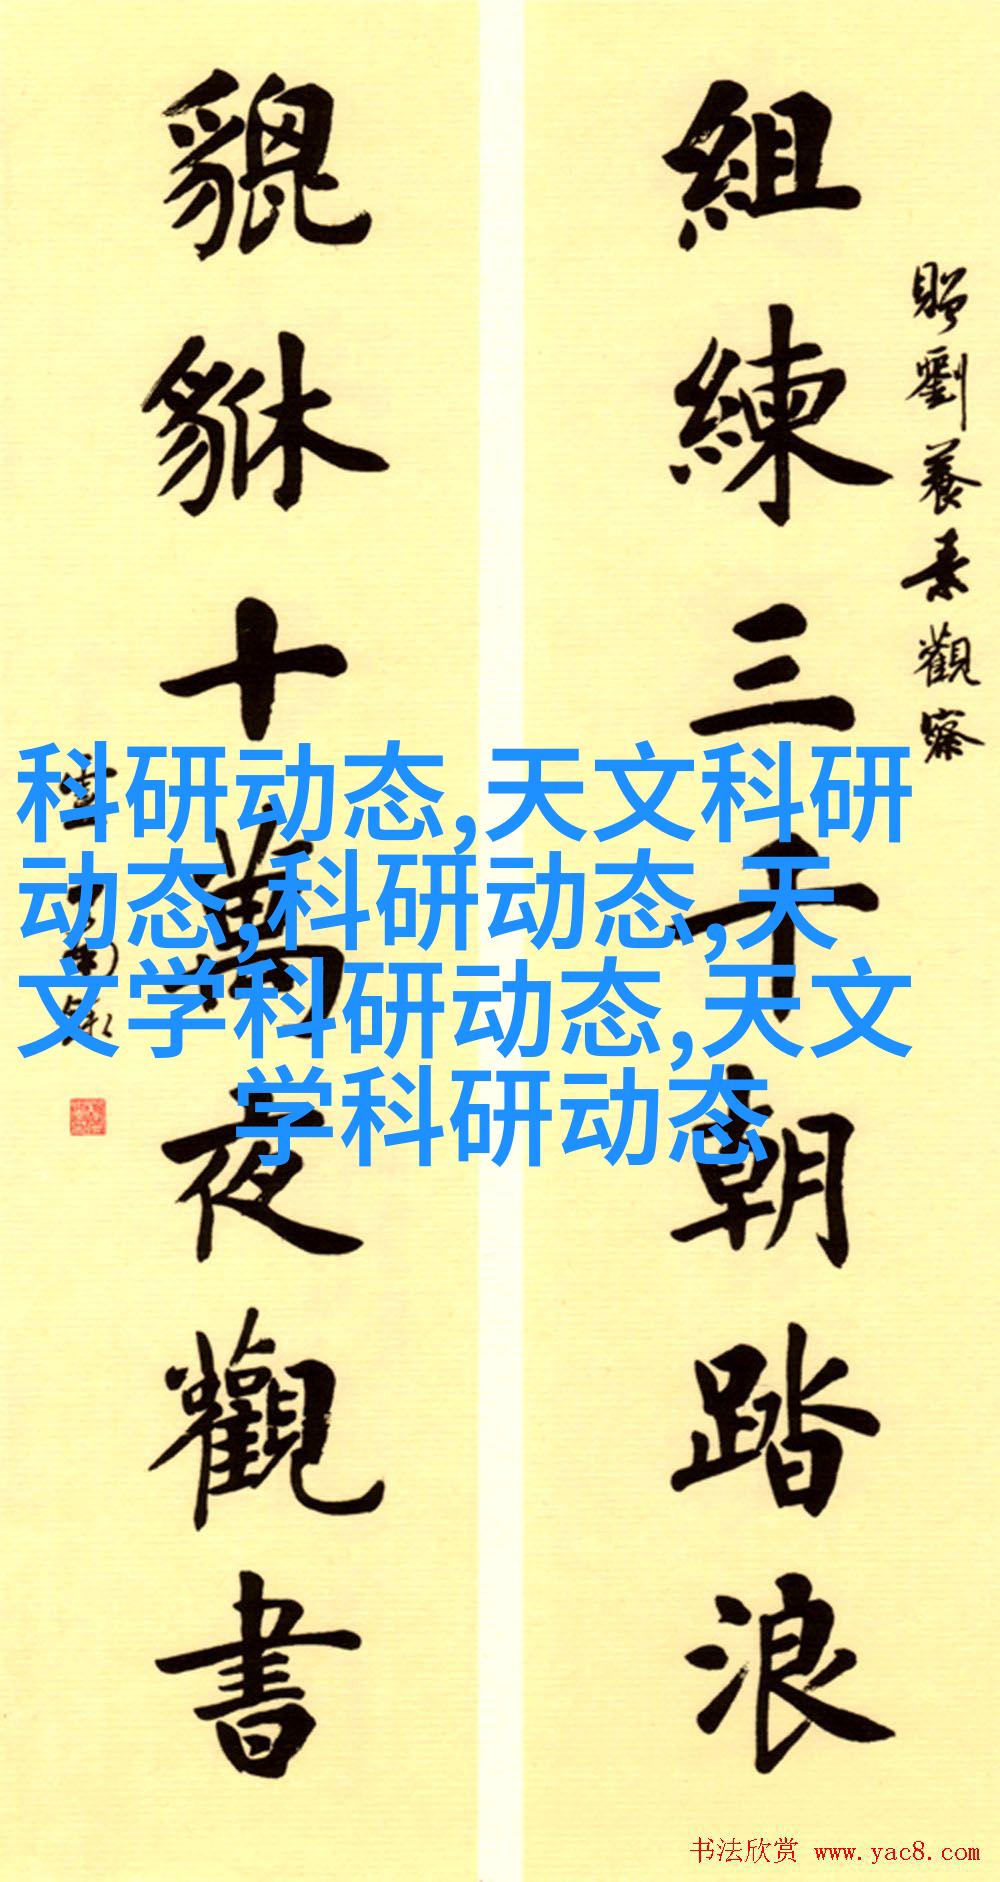 組練三千朝踏浪
貔貅十萬夜觀書
贈劉養素觀察
科研动态,天文科研
动态,科研动态,天
文学科研动态,天文
学科研动态
书法欣赏 www.yac8.com